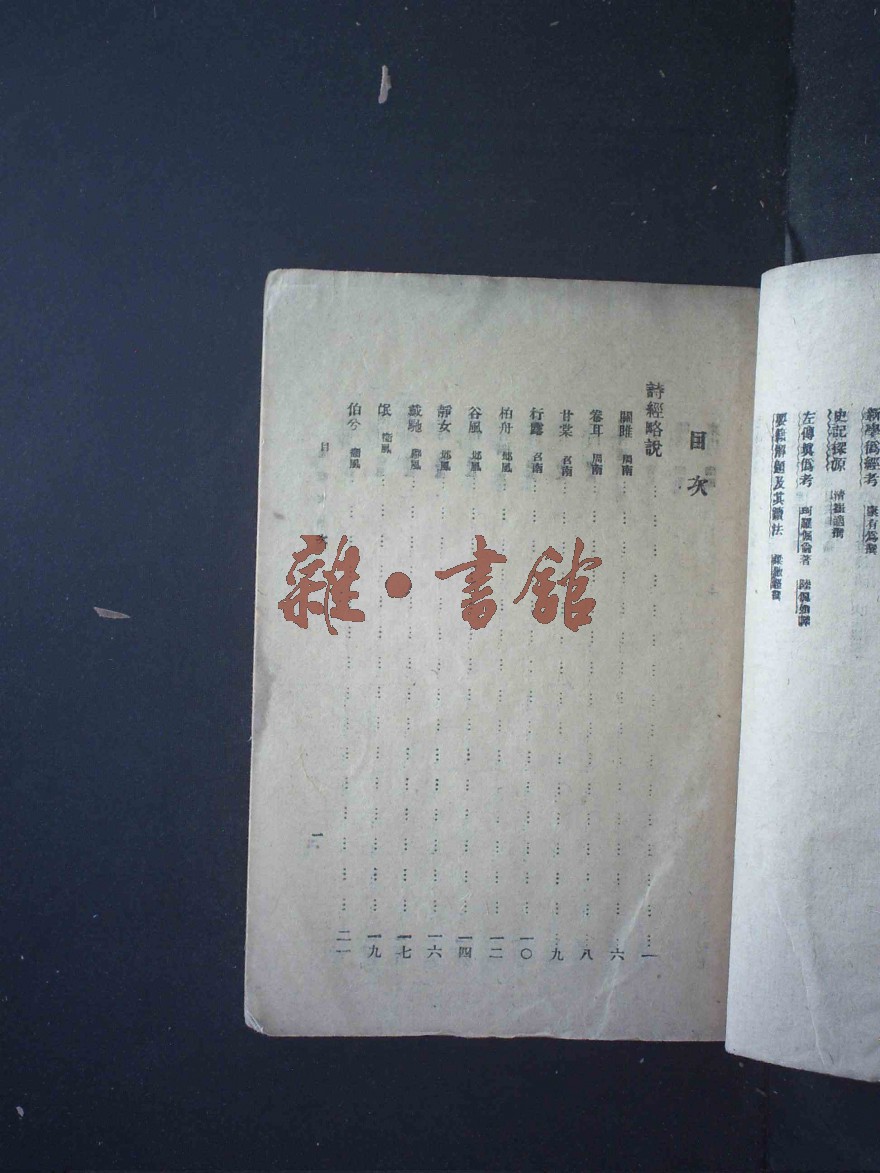 新學僞經考 康有爲撰
史記探源 清崔適撰
左傳眞僞考 珂羅倔倫著 陸侃如譯
要籍解題及其讀法 梁啟超撰
目次
詩經略說 一
關雎 周南 六
卷耳 周南 八
甘棠 召南 九
行露 召南 一〇
柏舟 邶風 一二
谷風 邶風 一四
靜女 邶風 一六
載馳 鄘風 一七
氓 衞風 一九
伯兮 衞風 二一
目 次 一
雜·書館